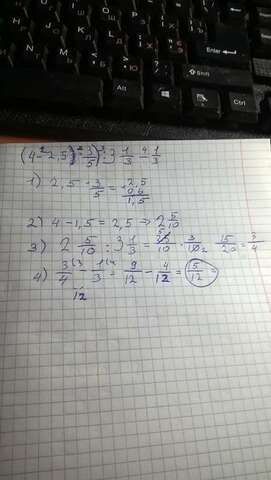 Enter
Shift
Ctrl
(4 - 2,5 · 3/5) : 3 1/3 - 1/3
1) 2,5 · 3/5 = 2,5
0,6
1,5
2) 4 - 1,5 = 2,5 ⇒ 2 5/10
3) 2 5/10 : 3 1/3 = 25/10 · 3/10 = 15/20 = 3/4
4) 3/4 - 1/3 = 9/12 - 4/12 = 5/12 =
12